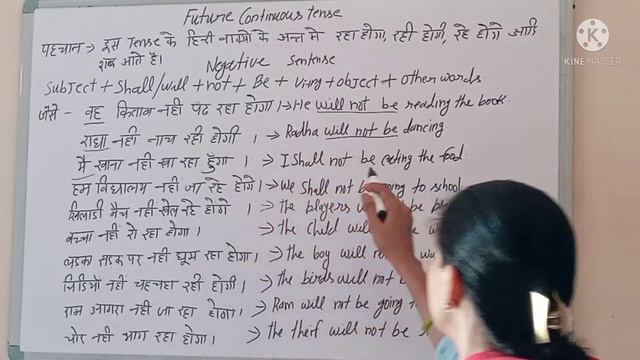 Future Continuous tense
KINEMASTER
पहचान → इस Tense के हिन्दी वाक्यों के अन्त में रहा होगा, रही होगी, रहे होंगे आदि
शब्द आते है।
Negative Sentense
Subject + Shall/will + not + Be + V+ing + object + Other words.
जैसे - वह किताब नही पढ रहा होगा। → He will not be reading the book.
राधा नही नाच रही होगी । → Radha will not be dancing
मै खाना नही खा रहा हूँगा । → I shall not be eating the food.
हम विद्यालय नही जा रहे होंगे। → We shall not going to school
खिलाडी मैच नही खेल रहे होंगे → the players be
बच्चा नही रो रहा होगा । → The child will
लडका सडक पर नही घूम रहा होगा। → the boy will
चिडियाँ नही चहचहा रही होगी । → the birds will not
राम आगरा नही जा रहा होगा। → Ram will not be going
चोर नही भाग रहा होगा । → the therf will not be